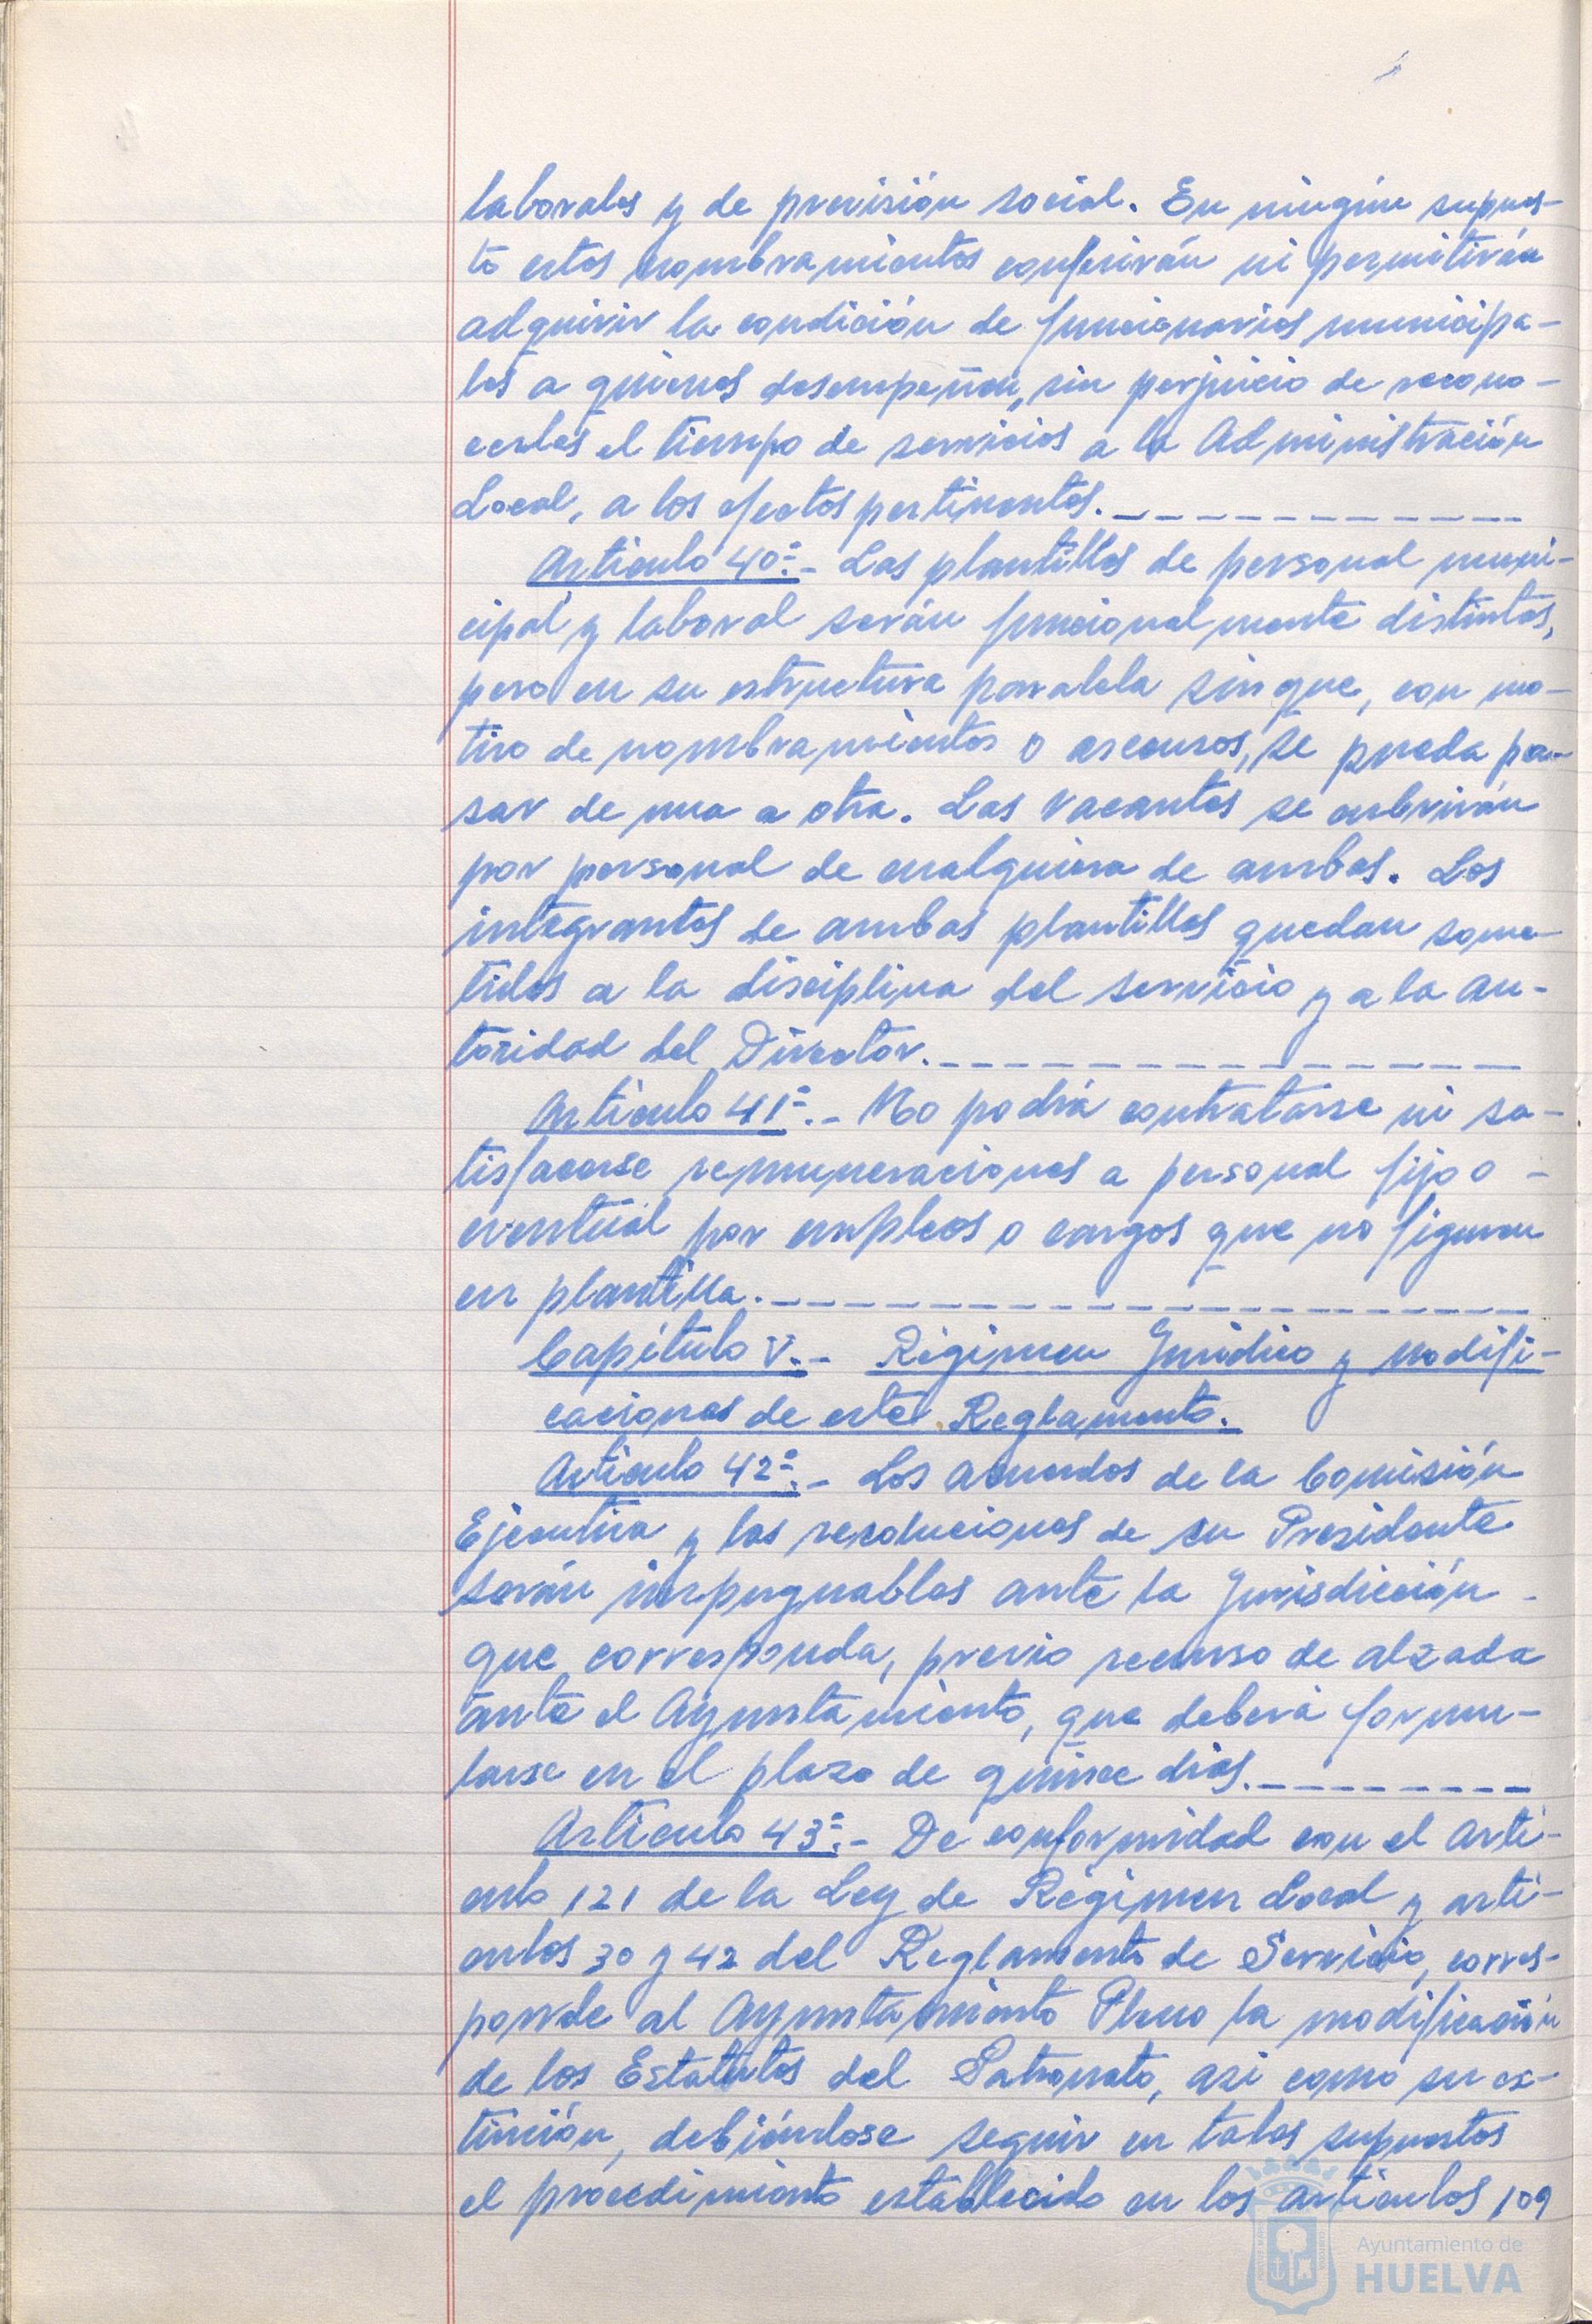 laborales y de previsión social. En ningún supues-
to estos nombramientos conferirán ni permitirán
adquirir la condición de funcionarios municipa-
les a quienes desempeñen, sin perjuicio de recono-
cerles el tiempo de servicios a la Administración
Local, a los efectos pertinentes.
Artículo 40º.- Las plantillas de personal muni-
cipal y laboral serán funcionalmente distintas,
pero en su estructura paralela sin que, con mo-
tivo de nombramientos o ascensos, se pueda pa-
sar de una a otra. Las vacantes se cubrirán
por personal de cualquiera de ambas. Los
integrantes de ambas plantillas quedan some-
tidos a la disciplina del servicio y a la au-
toridad del Director.
Artículo 41º.- No podrá contratarse ni sa-
tisfacerse remuneraciones a personal fijo o -
eventual por empleos o cargos que no figuren
en plantilla.
Capítulo V.- Régimen Jurídico y modifi-
caciones de este Reglamento.
Artículo 42º.- Los acuerdos de la Comisión
Ejecutiva y las resoluciones de su Presidente
serán impugnables ante la Jurisdicción -
que corresponda, previo recurso de alzada
ante el Ayuntamiento, que deberá formu-
larse en el plazo de quince días.
Artículo 43º.- De conformidad con el artí-
culo 121 de la Ley de Régimen Local y artí-
culos 30 y 42 del Reglamento de Servicio, corres-
ponde al Ayuntamiento Pleno la modificación
de los Estatutos del Patronato, así como su ex-
tinción, debiéndose seguir en tales supuestos
el procedimiento establecido en los artículos 109
Ayuntamiento de
HUELVA